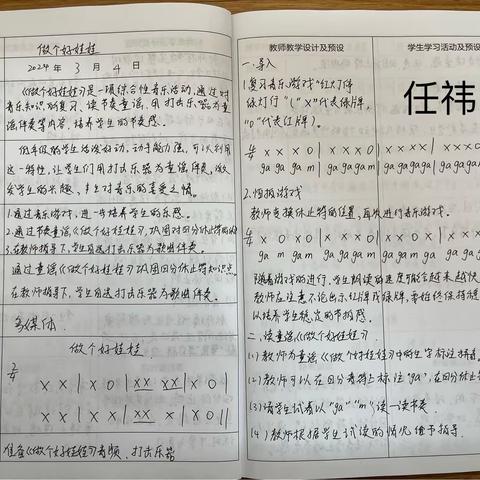 做个好娃娃
2024年 3月 4日
《做个好娃娃》是一项综合性音乐活动,通过对
音乐知识的复习、读节奏童谣、用打击乐器为童
谣伴奏等内容,培养学生的节奏感。
低年级的学生活泼好动,动手能力强,可以利用
这一特性,让学生们用打击乐器为童谣伴奏,激
发学生的兴趣,
1.通过音乐游戏,进一步培养学生的乐感。
2.通过节奏童谣《做个好娃娃》,巩固对四分休止符的
3.在教师指导下,学生自选打击乐器为歌曲伴奏。
通过童谣《做个好娃娃》巩固四分休止符知识点
在教师指导下,学生自选打击乐器为歌曲伴奏。
多媒体
做个好娃娃
2/4 x x | x 0 | xx xx | x 0 |
x x | x x | xx x | x 0 ||
准备《做个好娃娃》音频、打击乐器
教师教学设计及预设
一.导入
1.复习音乐游戏"红灯停
绿灯行"("x"代表绿牌,
"0"代表红牌)。
4/4 x x x 0 | x x x x | x x x
ga ga ga m | ga ga ga ga | ga ga ga
2.归拍游戏
教师变换休止符的位置,再次进行音乐游戏。
4/4 x 0 x x | x x x 0 | x 0 x
ga m ga ga | ga ga ga m | ga m ga
随着游戏的进行,学生朗读的速度可能会越来越快
教师应注意不论出示红牌或绿牌,要始终保持稳
以培养学生稳定的节拍感。
二、读童谣《做个好娃娃》
(1)教师为童谣《做个好娃娃》中的生字标注拼音。
(2)教师可以在四分音符上标注"ga",在四分休止
(3)请学生试着以"ga""m"读一读节奏
(4)教师根据学生试读的情况给予指导。
学生学习活动及预设
任祎